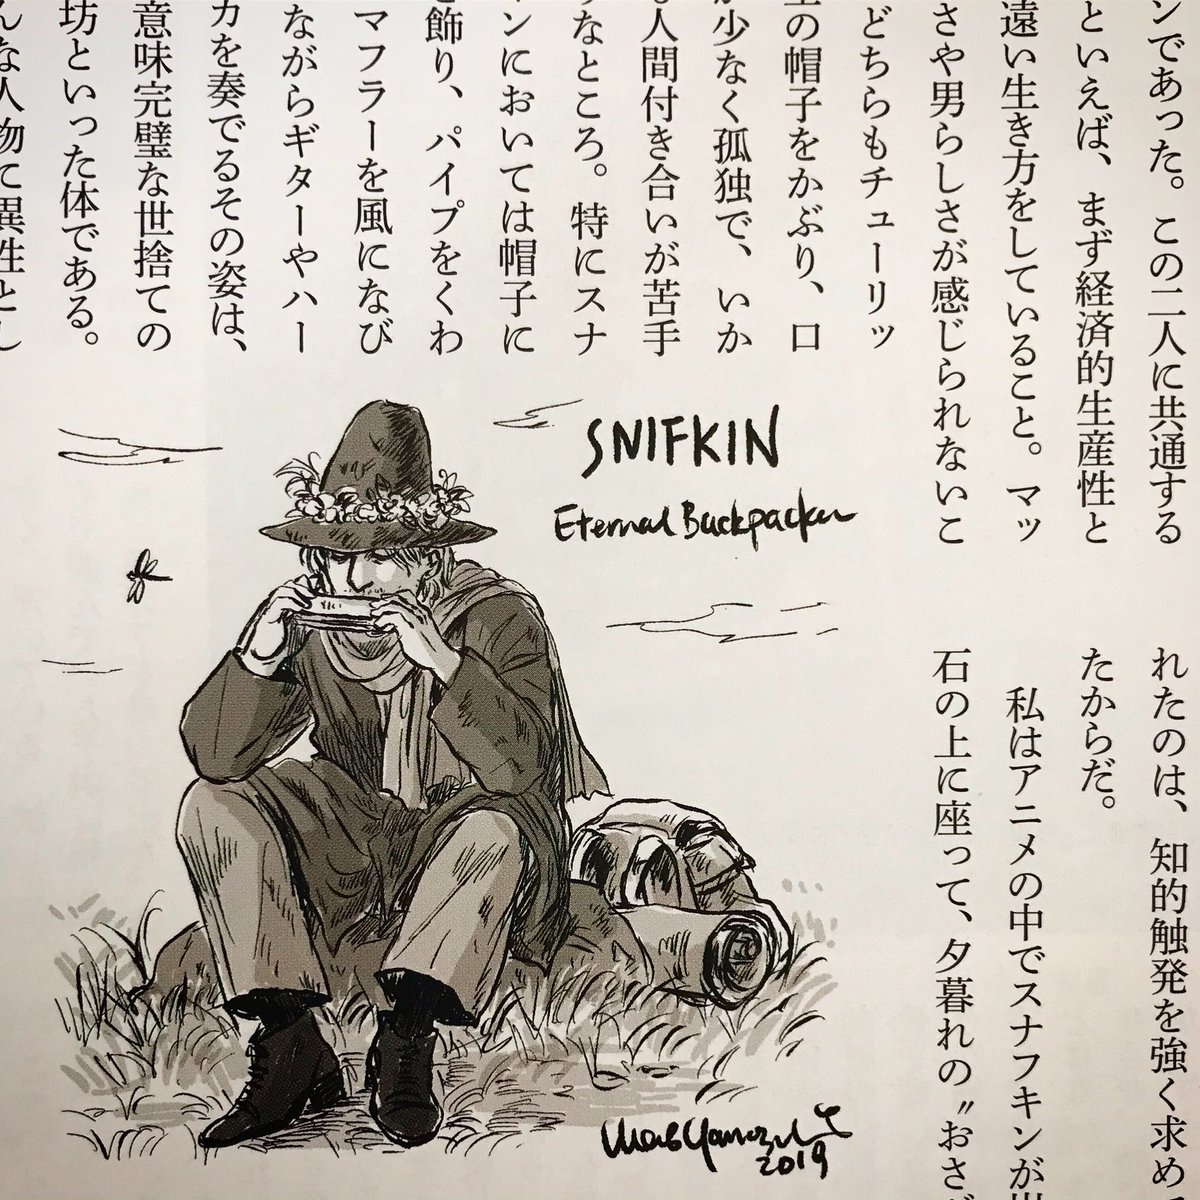 ンであった。この二人に共通する
といえば、まず経済的生産性と
遠い生き方をしていること。マッ
さや男らしさが感じられないこ
どちらもチューリッ
の帽子をかぶり、口
が少なく孤独で、いか
。人間付き合いが苦手
なところ。特にスナ
ンにおいては帽子に
飾り、パイプをくわ
マフラーを風になび
ながらギターやハー
カを奏でるその姿は、
意味完璧な世捨ての
坊といった体である。
んな人物で異性とし
れたのは、知的触発を強く求め
たからだ。
私はアニメの中でスナフキンが
石の上に座って、夕暮れの〝おさ
SNIFKIN
Eternal Backpacker
Mari Yamazaki
2019